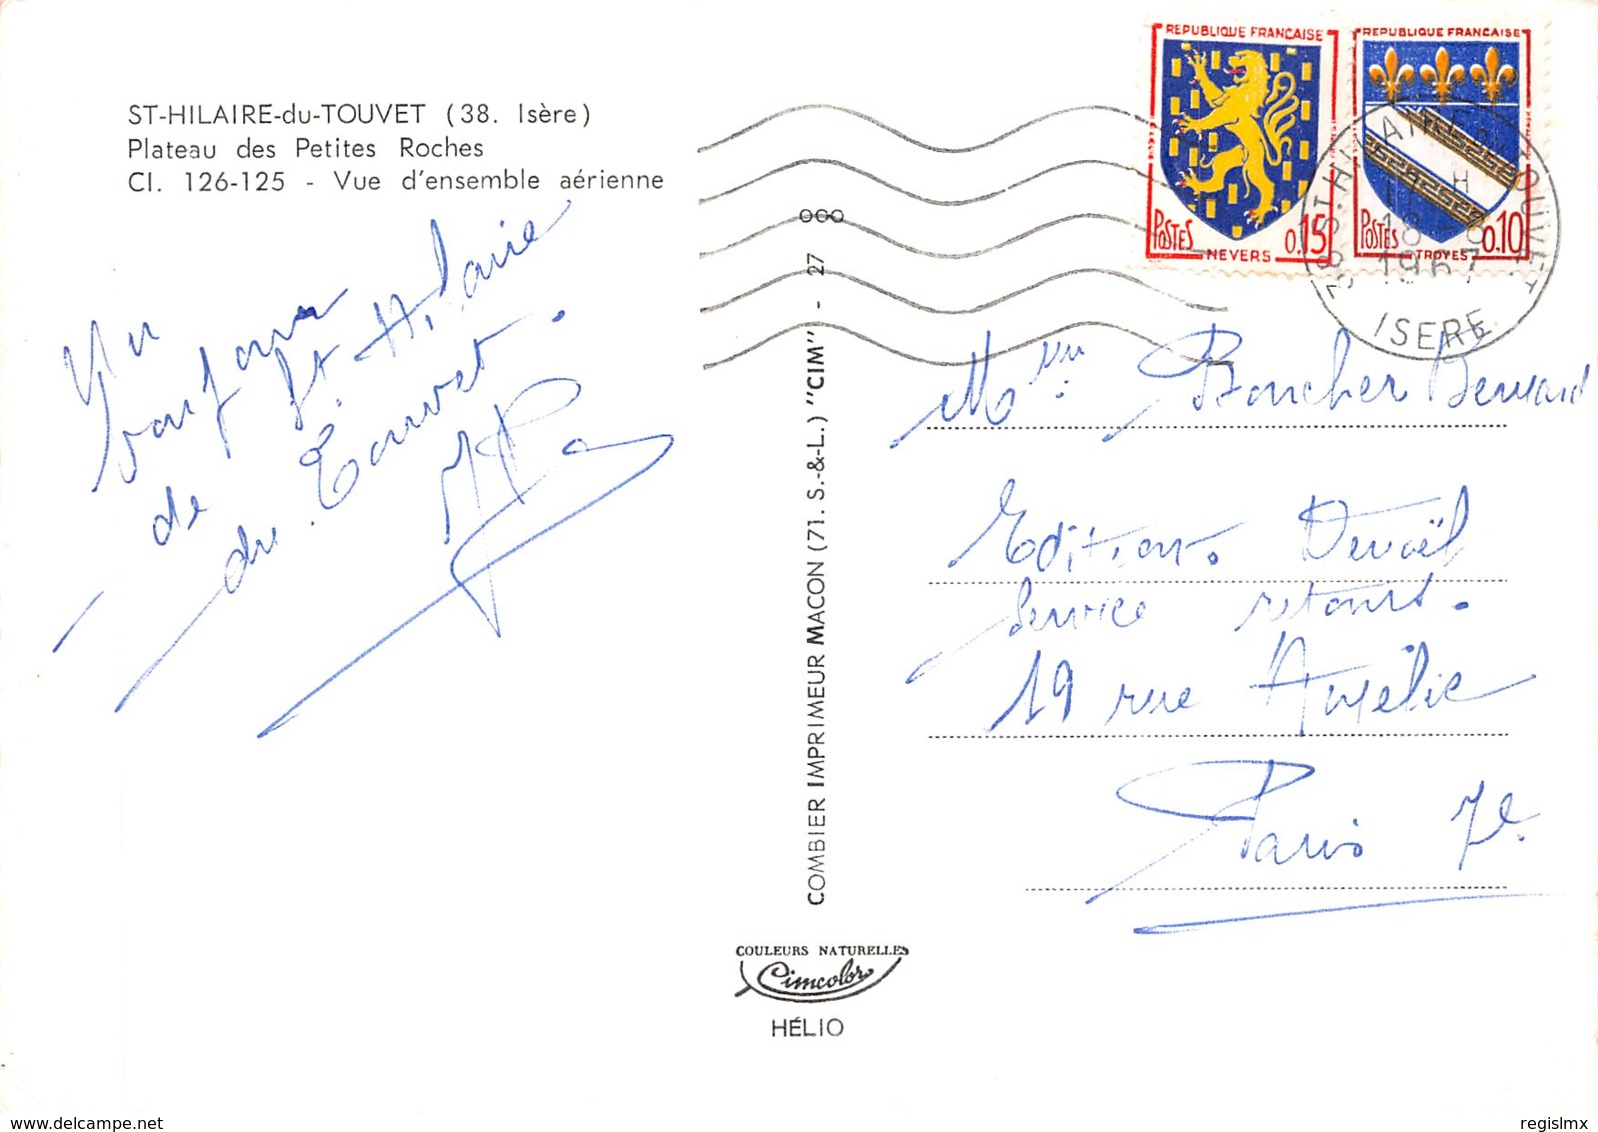 ST-HILAIRE-du-TOUVET (38. Isère)
Plateau des Petites Roches
Cl. 126-125 - Vue d'ensemble aérienne
Un
bonjour
de St Hilaire
du Touvet.
COMBIER IMPRIMEUR MACON (71. S.-&-L.) "CIM" - 27 000
COULEURS NATURELLES
Cimcolor
HÉLIO
REPUBLIQUE FRANCAISE
POSTES
0.15
NEVERS
REPUBLIQUE FRANCAISE
POSTES
0.10
TROYES
38 ST.HILAIRE DU TOUVET
H
18
1967
ISERE
Boucher Bernard
Editions Denoël
Service retours.
19 rue Amélie
Paris 7e.
regislmx